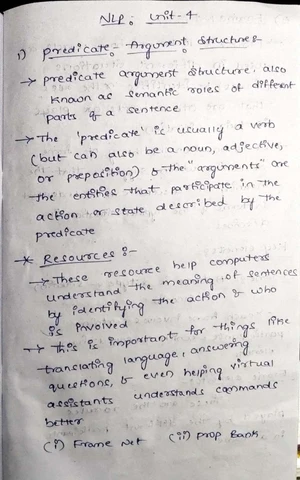 NLP: Unit-4
1) Predicate - Argument Structure:-
→ predicate argument structure, also
known as semantic roles of different
parts of a sentence
→ The 'predicate' is usually a verb
(but can also be a noun, adjective,
or preposition) & the "arguments" are
the entities that participate in the
action or state described by the
predicate
* Resources :-
→ These resource help computers
understand the meaning of sentences
by identifying the action & who
is involved
→ This is important for things like
translating language, answering
questions, & even helping virtual
assistants understands commands
better
(i) Frame Net (ii) Prop Bank.